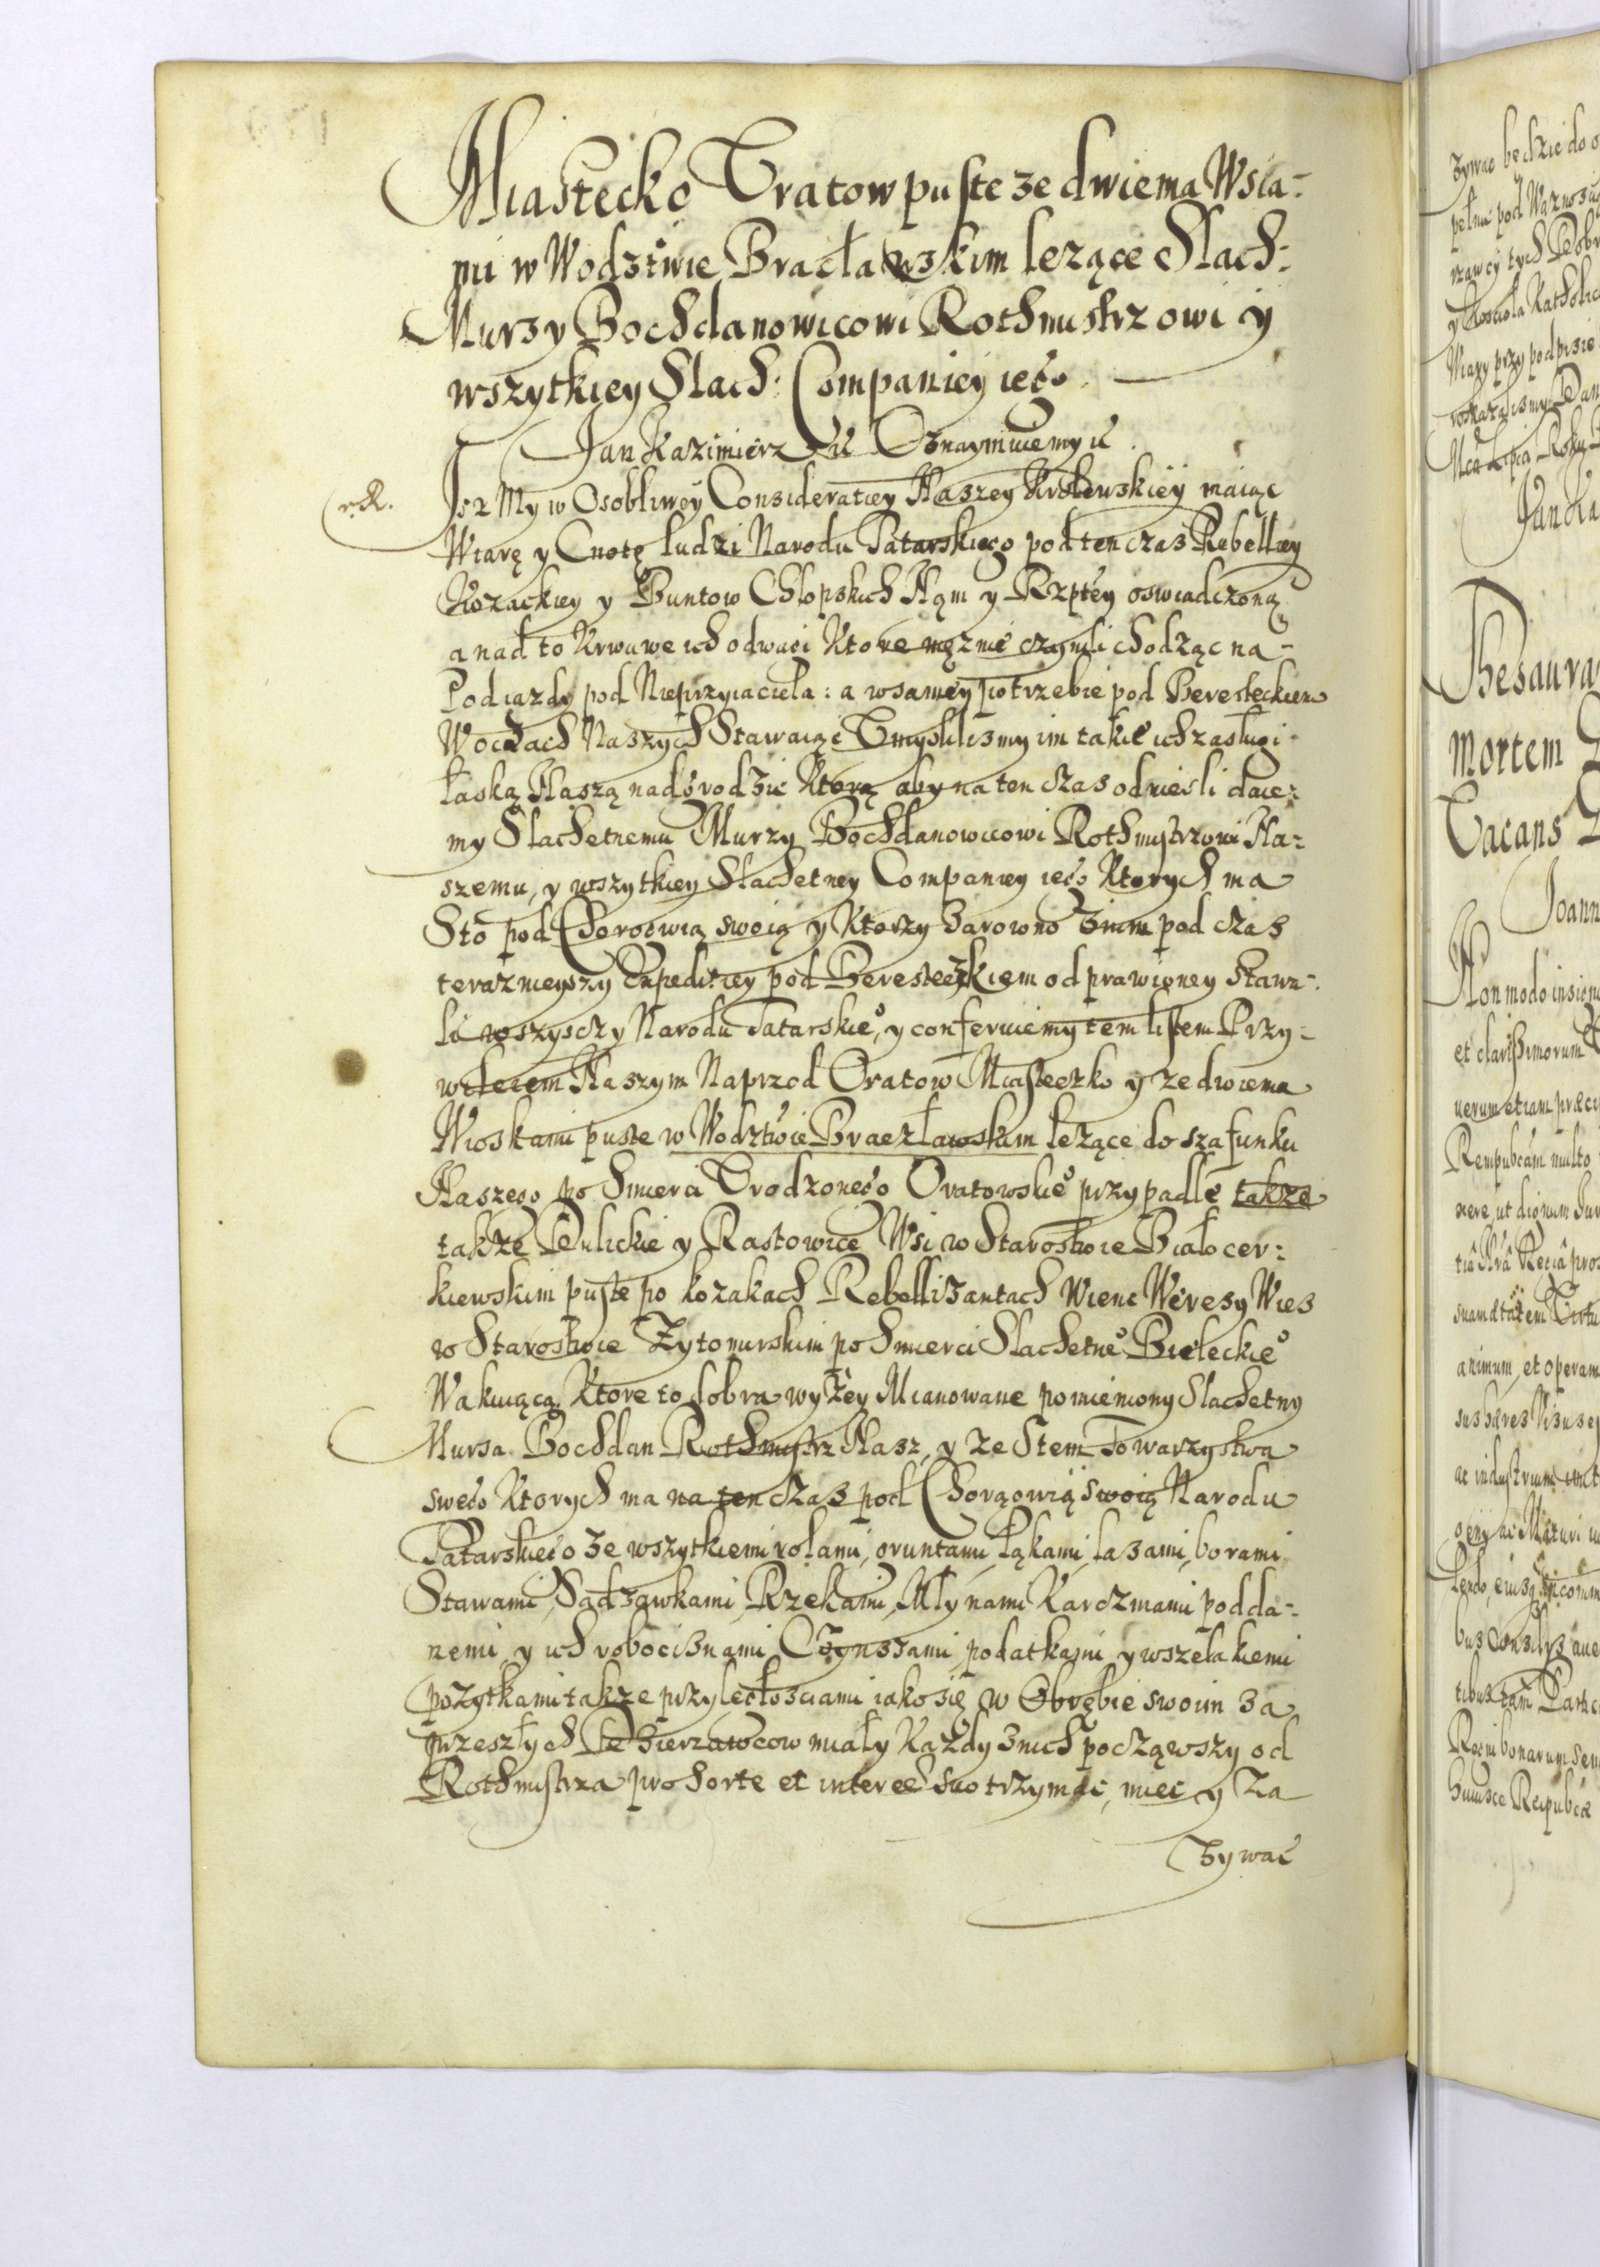 Miastecko Oratow puste ze dwiema Wsia-
mi w Wodztwie Bracławskim lezące Slach:
Murzy Bochdanowicowi Rothmistrzowi y
wszytkiey Slach: Companiey ieo
Jan Kazimierz etc Oznaymuiemy etc
Isz My w Osobliwey Consideratiey Naszey Krolewskiey maiąc
Wiarę y Cnotę ludzi Narodu Tatarskiego pod ten czas Rebelliey
Kozackiey y Buntow Chłopskich Nąm y Rzptey oswiadczoną
a nad to Krwawe ich odwagi Ktore mężnie czynili chodząc na-
Podiazdy pod Nieprzyiaciela: a w samey potrzebie pod Beresteckiem
W oczach Naszych Stawaiąc Umyslilismy im takie ich zasługi
łaską Naszą nadgrodzic Ktorą aby na ten czas odniesli daie-
my Slachetnemu Murzy Bochdanowicowi Rothmistrzowi Na-
szemu, y wszytkiey Slachetney Companiey iego Ktorych ma
Sto pod Chorągwią swoią y Ktorzy zarowno z nim pod czas
teraznieyszy Expeditiey pod Beresteczkiem odprawioney Stawa-
li wszysczy Narodu Tatarskieo, y conferuiemy tem listem Przy-
wileiem Naszym Naprzod Oratow Miasteczko y ze dwiema
Wioskami puste w Wodztwie Braczławskim leżące do szafunku
Naszego po Smierci Urodzonego Oratowskieo przypadłe takze
takze Pulickie y Rastowice Wsi w Starostwie Białocer-
kiewskim puste po kozakach Rebellizantach Wienc Weresy Wies
w Starostwie Zytomirskim po Smierci Slachetneo Bieleckieo
Wakuiącą Ktore to dobra wyżey Mianowane pomieniony Slachetny
Mursa Bochdan Rothmistrz Nasz, y ze Stem Towarzystwa
sweo Ktorych ma na ten czas pod Chorągwią swoią Narodu
Tatarskiego ze wszytkiemi rolami, gruntami, łąkami, lasami, borami
Stawami, Sadzawkami, Rzekami, Młynami Karczmami podda-
nemi y ich robociznami, Czynszami podatkami y wszelakiemi
pożytkami takze przyległosciami iako się w Obrębie swoim za
przeszłych Dzierzawcow miały Każdy z nich począwszy od
Rothmistrza pro sorte et interesse suo trzymac, miec y za
zywac